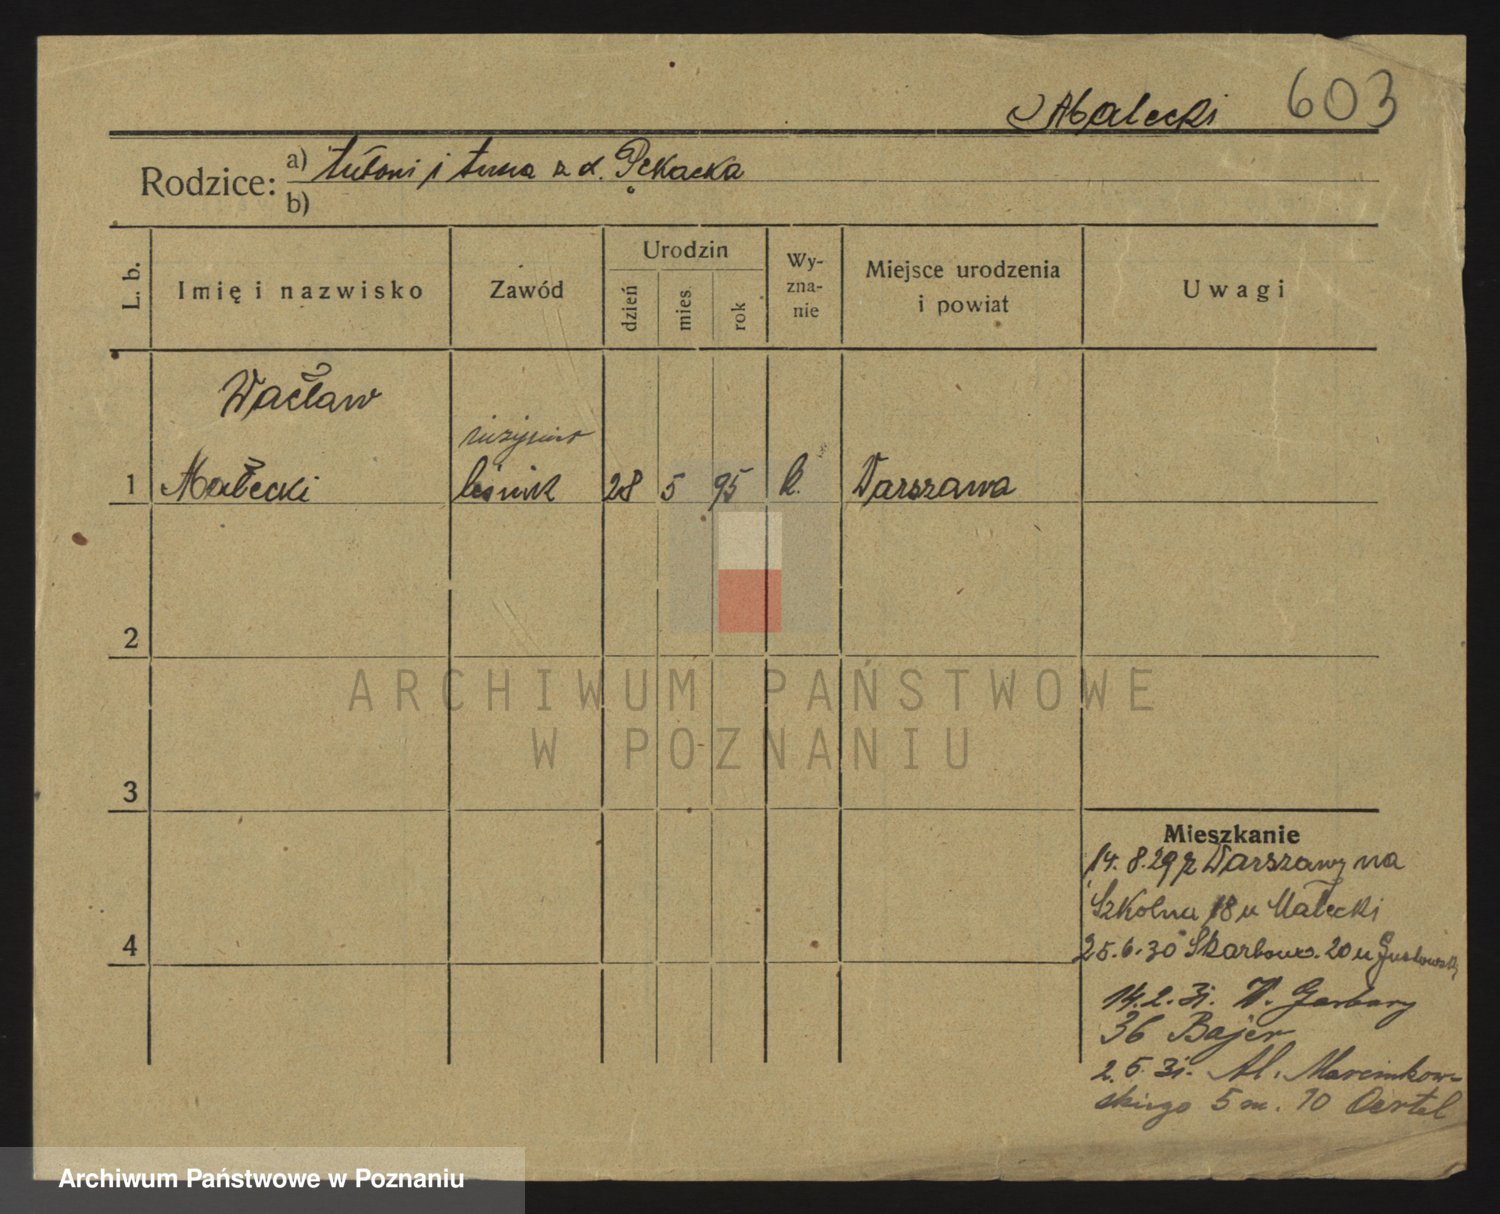 Małecki 603
Rodzice: a) Antoni i Anna z d. Pękacka
b)
L. b.
Imię i nazwisko
Zawód
Urodzin
dzień
mies.
rok
Wy-
zna-
nie
Miejsce urodzenia
i powiat
Uwagi
Wacław
inżynier
1 Małecki leśnik 28 5 95 k. Warszawa
2
3
4
Mieszkanie
14.8.29 z Warszawy na
Szkolna 18 u Małecki
25.6.30 Skarbowa 20 u
14.2.31. W. Garbary
36 Bajer
2.5.31. Al. Marcinkow-
skiego 5 m. 10 Oertel
ARCHIWUM PAŃSTWOWE
W POZNANIU
Archiwum Państwowe w Poznaniu